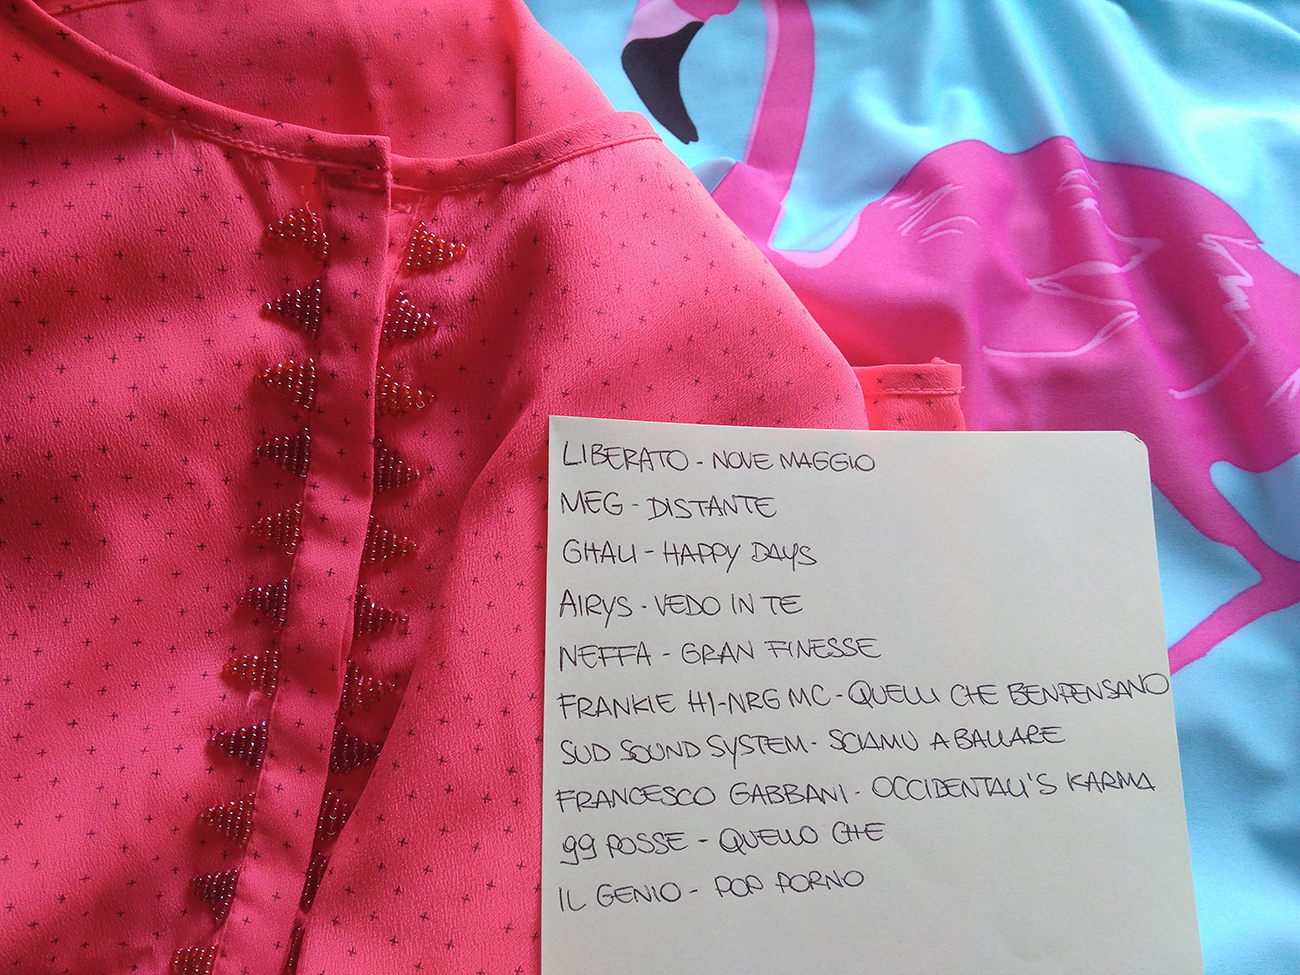 LIBERATO - NOVE MAGGIO
MEG - DISTANTE
GHALI - HAPPY DAYS
AIRYS - VEDO IN TE
NEFFA - GRAN FINESSE
FRANKIE HI-NRG MC - QUELLI CHE BENPENSANO
SUD SOUND SYSTEM - SCIAMU A BALLARE
FRANCESCO GABBANI - OCCIDENTALI'S KARMA
99 POSSE - QUELLO CHE
IL GENIO - POP PORNO